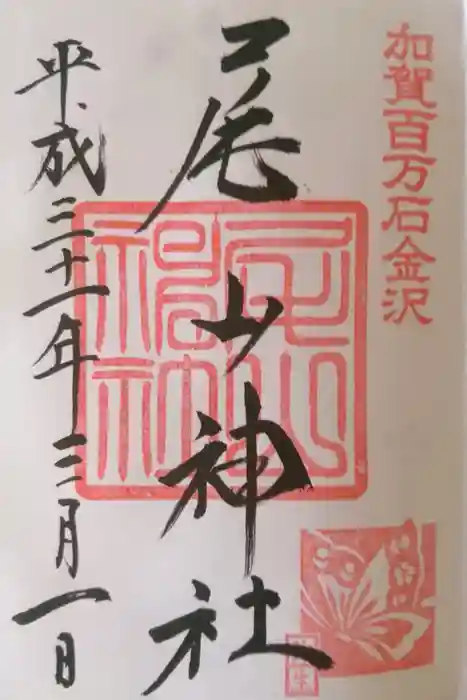 加賀百万石金沢
尾山神社
平成三十一年三月一日